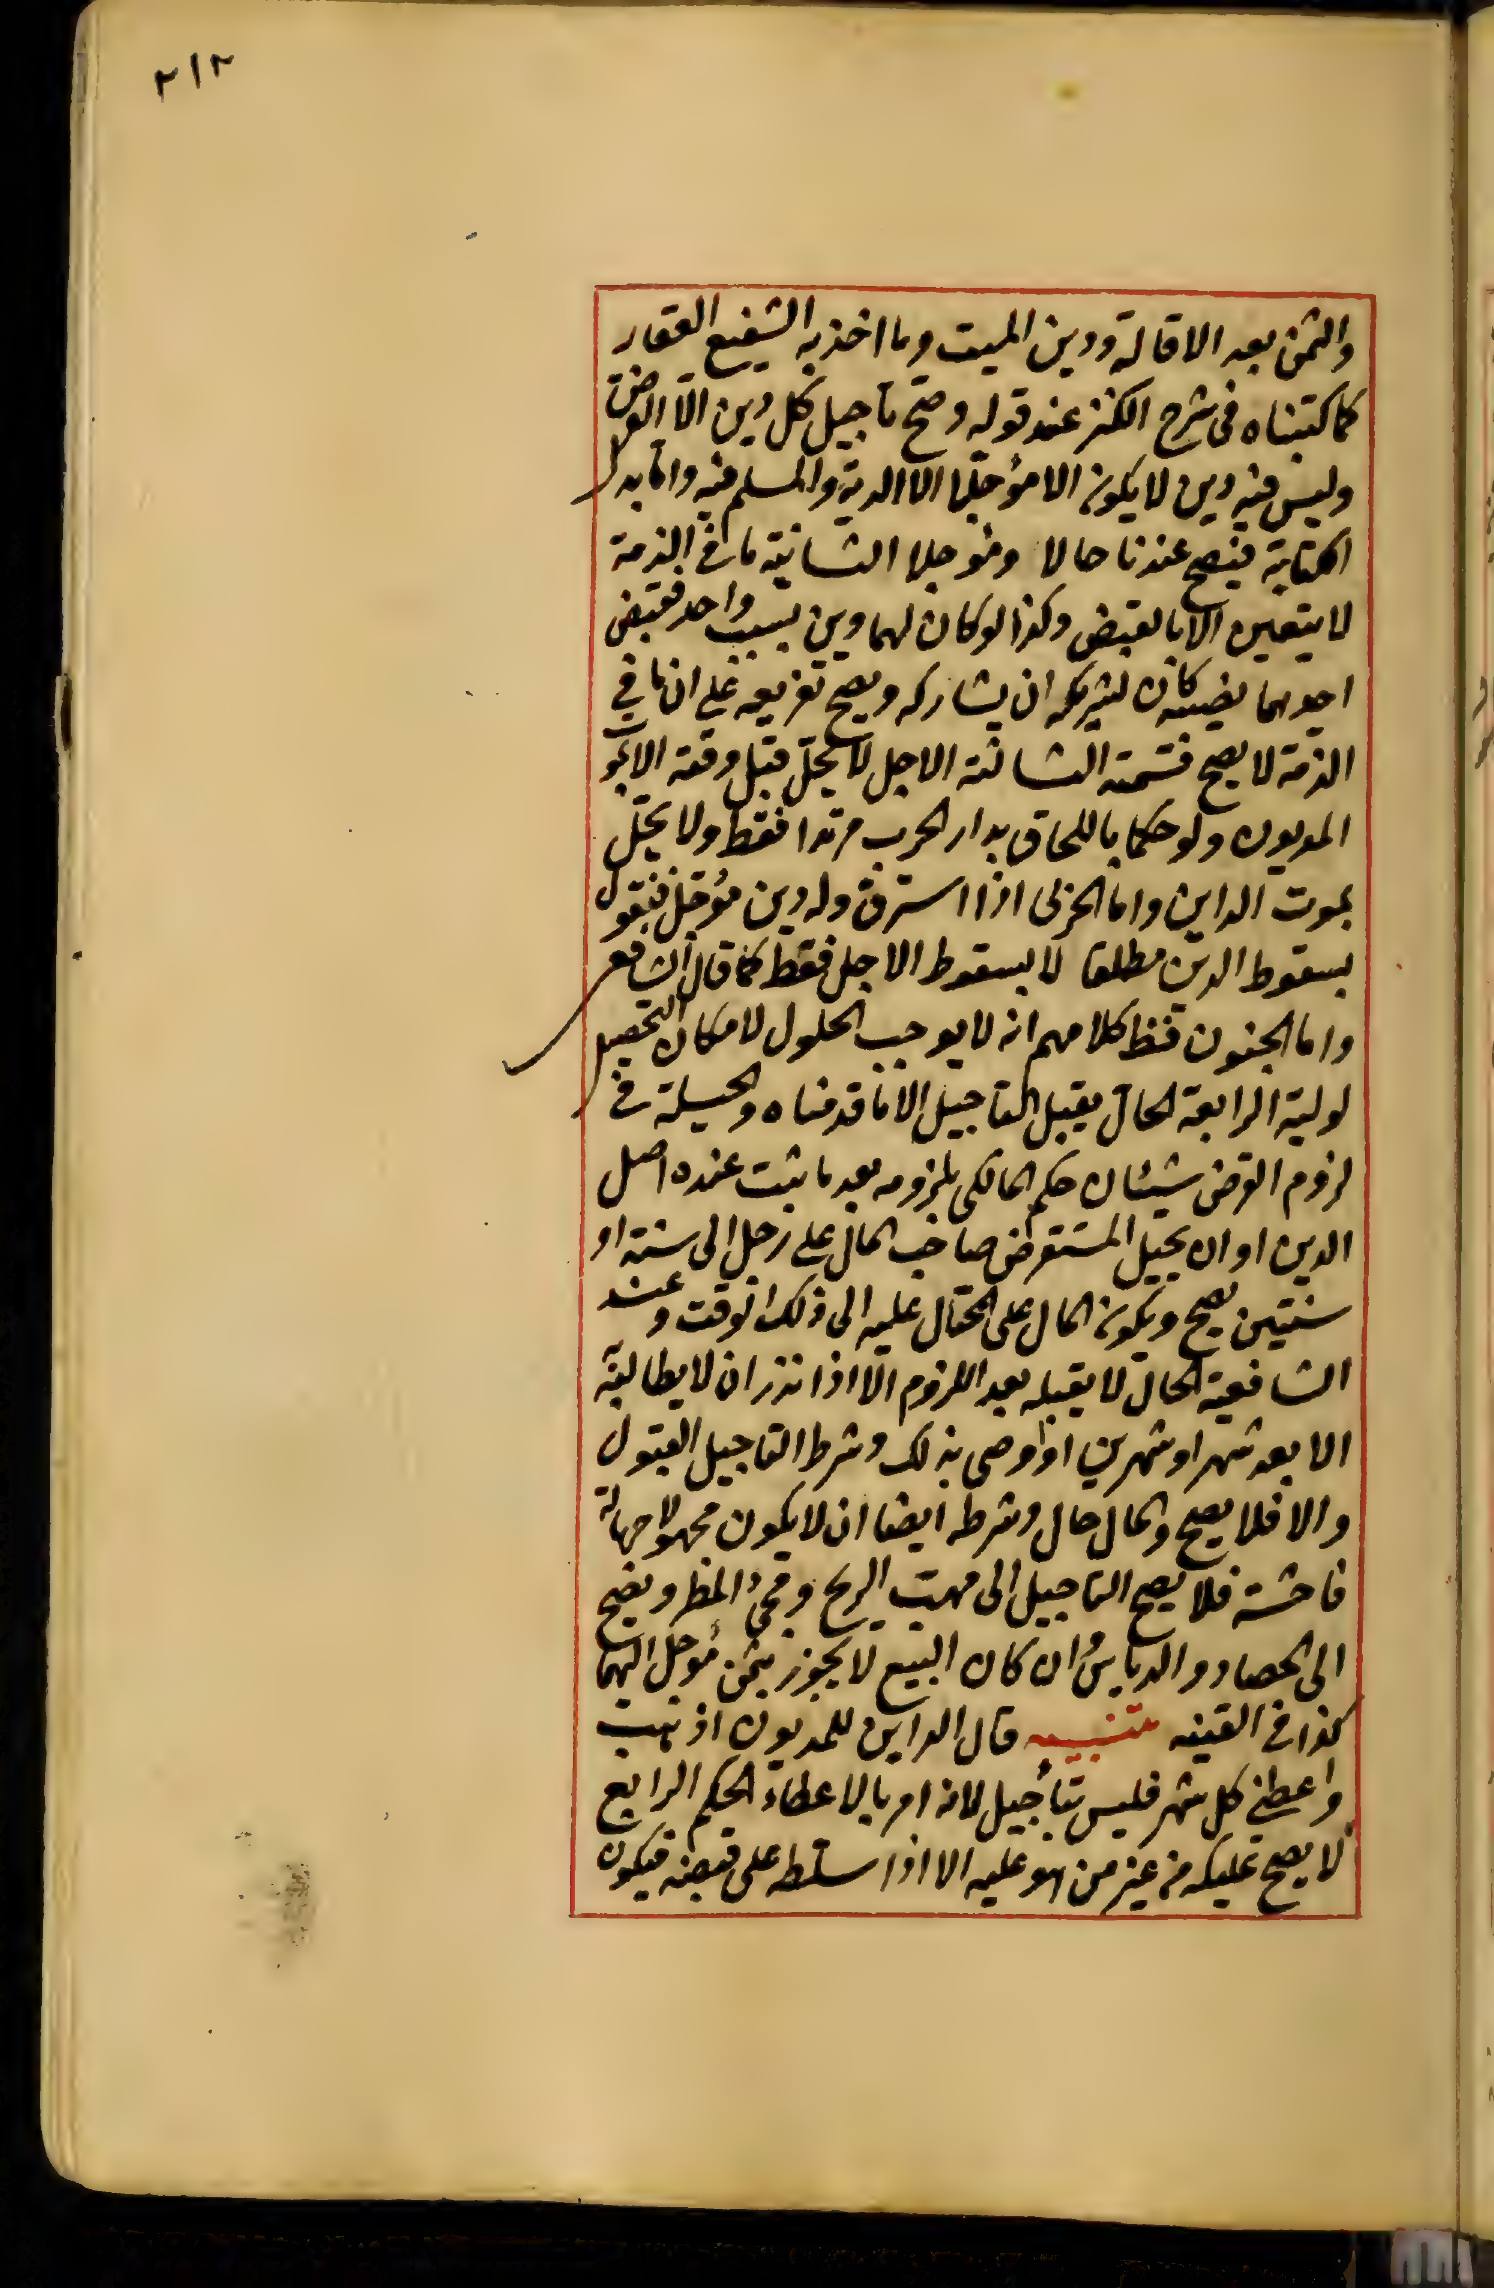 ٢١٢
والثمن بعد الاقالة ودين الميت وما اخذ به الشفيع العقار
كما كتبناه فى شرح الكنز عند قوله وصح تاجيل كل دين الا القرض
وليس فيه دين لا يكون الا مؤجلا الا الدية والمسلم فيه واما بدل
الكتابة فيصح عندنا حالا ومؤجلا الثانية ما فى الذمة
لا يتعين الا بالقبض وكذا لو كان لهما دين بسبب واحد فقبض
احدهما نصيبه كان لشريكه ان يشاركه ويصح تفريعه على ان ما فى
الذمة لا يصح قسمته الثالثة الاجل لا يحل قبل وقته الا بموت
المديون ولو حكما باللحاق بدار الحرب مرتدا فقط ولا يحل
بموت الداين واما الحربى اذا استرق وله دين مؤجل فنقول
بسقوط الدين مطلقا لا بسقوط الاجل فقط كما قال الشافعى
واما الجنون فظ كلامهم انه لا يوجب الحلول لامكان التحصيل
لوليه الرابعة الحال يقبل التاجيل الا ما قدمناه والحيلة فى
لزوم القرض شيئان حكم المالكى بلزومه بعد ما ثبت عنده اصل
الدين او ان يحيل المستقرض صاحب المال على رجل الى سنة او
سنتين يصح ويكون المال على المحتال عليه الى ذلك الوقت وعند
الشافعية الحال لا يقبله بعد اللزوم الا اذا نذر ان لا يطالبه
الا بعد شهر او شهرين او اوصى بذلك وشرط التاجيل القبول
والا فلا يصح والمال حال وشرطه ايضا ان لا يكون مجهولا جهالة
فاحشة فلا يصح التاجيل الى مهب الريح ومجئ المطر ويصح
الى الحصاد والدياس وان كان البيع لا يجوز بثمن مؤجل اليهما
كذا فى القنيه تنبيه قال الداين للمديون اذهب
واعطنى كل شهر فليس بتأجيل لانه امر بالاعطاء الحكم الرابع
لا يصح تمليكه من غير من هو عليه الا اذا سلطه على قبضه فيكون